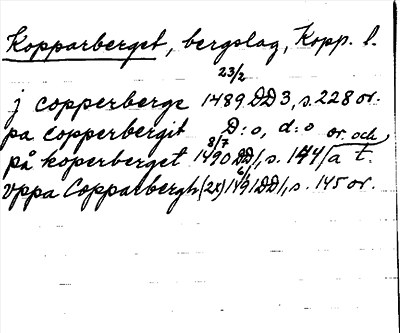 Kopparberget, bergslag, Kopp. l.
23/2
j copperberge 1489 DD3, s. 228 or.
pa copperbergit D:o, d:o
8/7 or. och
på koperberget 1490 DD1, s. 144/a t.
6/1
vppa Copparbergh (2x) 1491 DD1, s. 145 or.